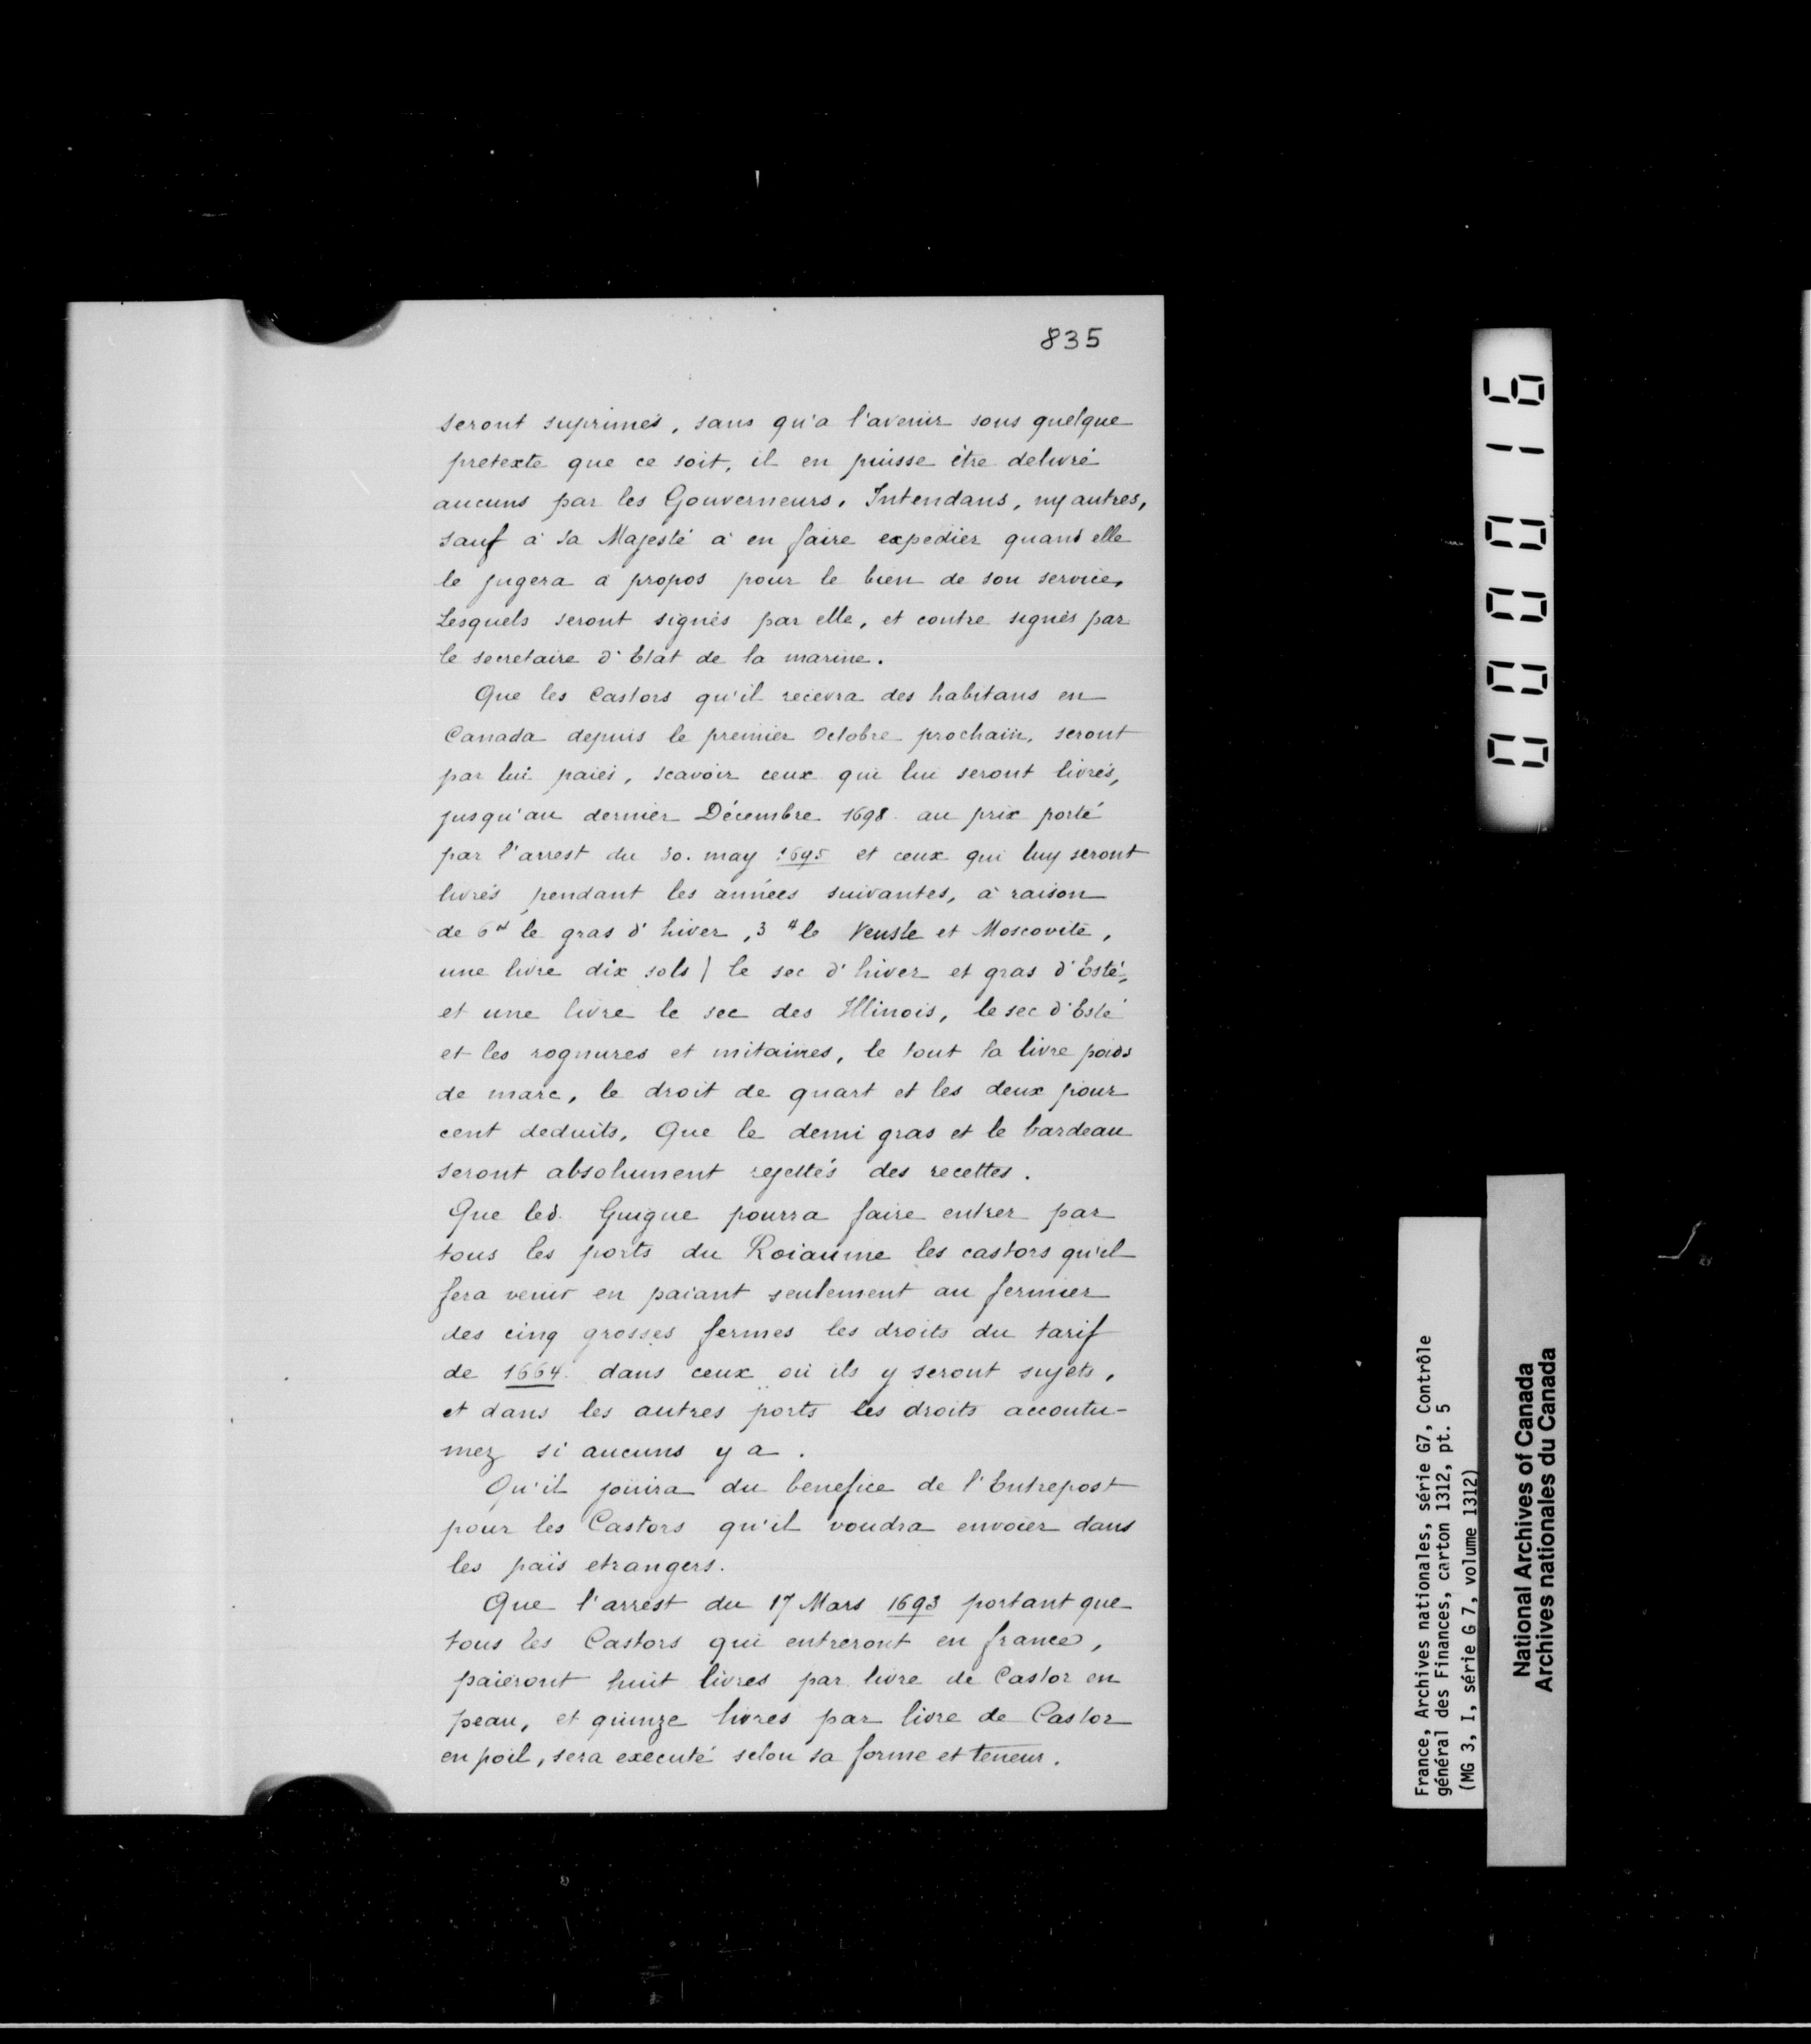 835
seront suprimés, sans qu'a l'avenir sous quelque
pretexte que ce soit, il en puisse être delivré
aucuns par les Gouverneurs, Intendans, ny autres,
sauf à sa Majesté à en faire expedier quand elle
le jugera a propos pour le bien de son service,
Lesquels seront signés par elle, et contre signés par
le secretaire d'Etat de la marine.
Que les Castors qu'il recevra des habitans en
Canada depuis le premier Octobre prochain, seront
par lui paiés, scavoir ceux qui lui seront livrés,
jusqu'au dernier Décembre 1698 au prix porté
par l'arrest du 30. may 1695 et ceux qui luy seront
livrés pendant les années suivantes, à raison
de 6# le gras d'hiver, 3# le Veusle et Moscovite,
une livre dix sols) le sec d'hiver et gras d'Esté,
et une livre le sec des Illinois, le sec d'Esté
et les rognures et mitaines, le tout la livre poids
de marc, le droit de quart et les deux pour
cent deduits, Que le demi gras et le bardeau
seront absolument rejettés des recettes.
Que led. Guigue pourra faire entrer par
tous les ports du Roiaume les castors qu'il
fera venir en paiant seulement au fermier
des cinq grosses fermes les droits du tarif
de 1664. dans ceux où ils y seront sujets,
et dans les autres ports les droits accoutu-
mez si aucuns y a.
Qu'il joüira du benefice de l'Entrepost
pour les Castors qu'il voudra envoier dans
les païs etrangers.
Que l'arrest du 17 Mars 1693 portant que
tous les Castors qui entreront en france,
paieront huit livres par livre de Castor en
peau, et quinze livres par livre de Castor
en poil, sera executé selon sa forme et teneur.
000016
France, Archives nationales, série G7, Contrôle
général des Finances, carton 1312, pt. 5
(MG 3, I, série G 7, volume 1312)
National Archives of Canada
Archives nationales du Canada